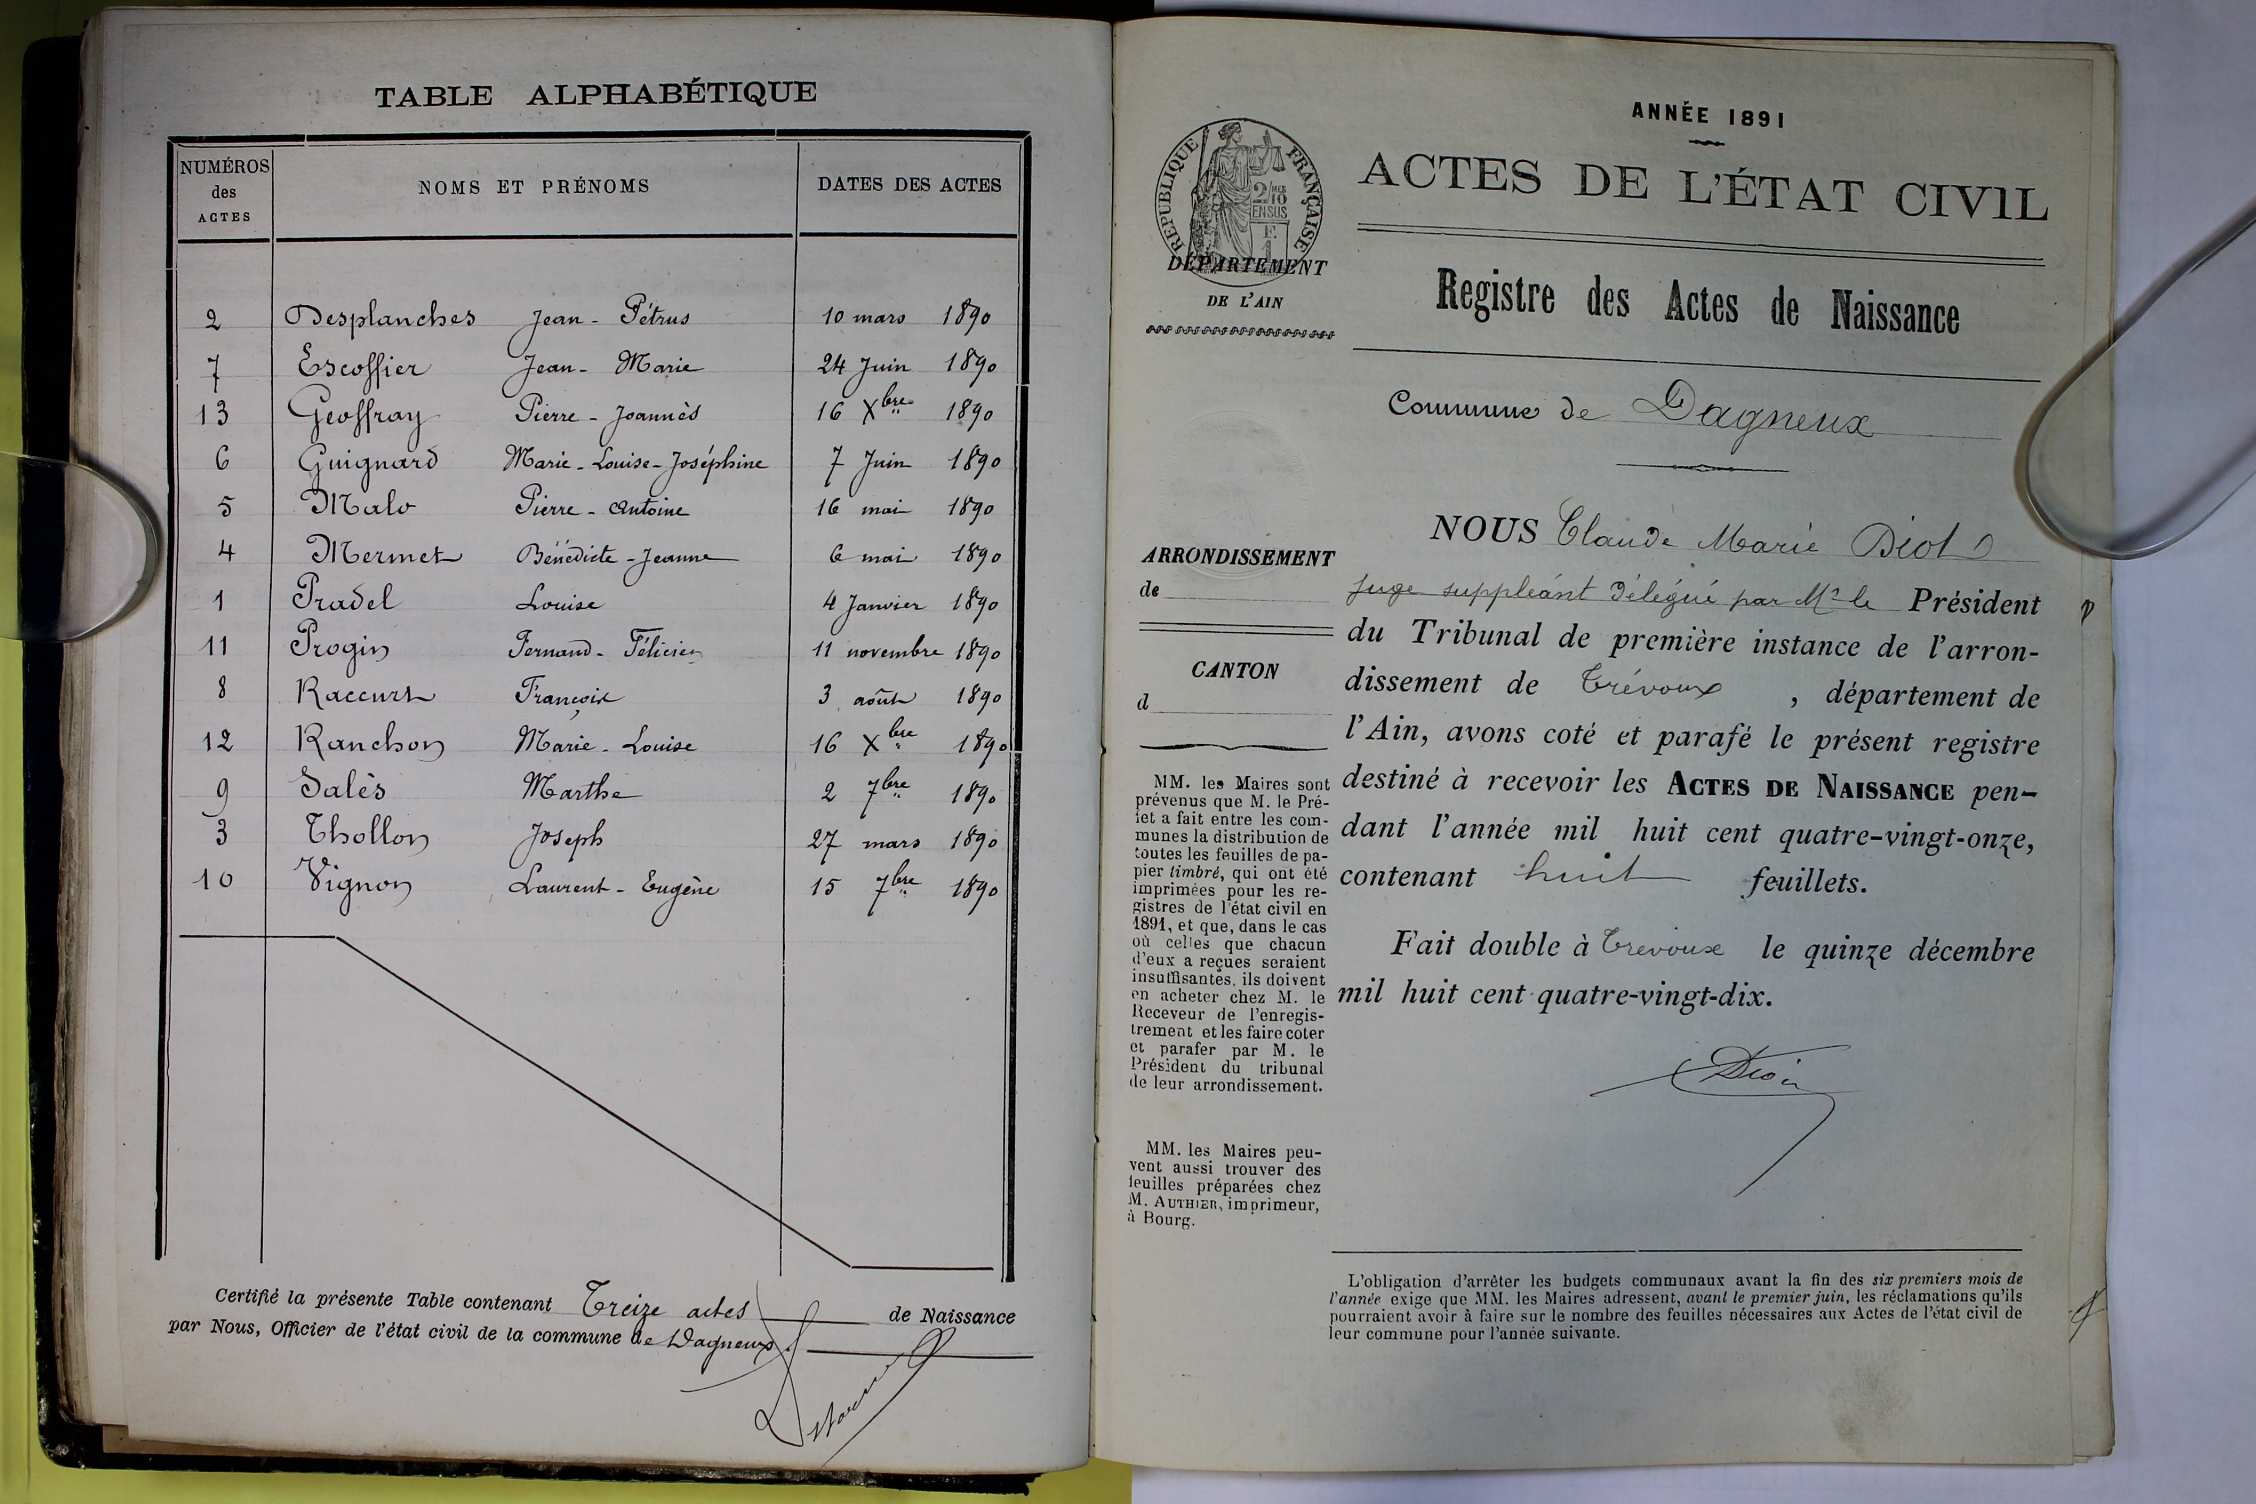 TABLE ALPHABÉTIQUE
NUMÉROS des ACTES NOMS ET PRÉNOMS DATES DES ACTES
2 Desplanches Jean - Pétrus 10 mars 1890
7 Escoffier Jean - Marie 24 Juin 1890
13 Geoffray Pierre - Joannès 16 Xbre 1890
6 Guignard Marie - Louise - Joséphine 7 Juin 1890
5 Malo Pierre - Antoine 16 mai 1890
4 Mermet Bénédicte - Jeanne 6 mai 1890
1 Pradel Louise 4 Janvier 1890
11 Progin Fernand - Félicien 11 novembre 1890
8 Raccurt François 3 août 1890
12 Ranchon Marie - Louise 16 Xbre 1890
9 Salès Marthe 2 7bre 1890
3 Thollon Joseph 27 mars 1890
10 Vignon Laurent - Eugène 15 7bre 1890
Certifié la présente Table contenant Treize actes de Naissance
par Nous, Officier de l'état civil de la commune de Dagneux.
ANNÉE 1891
ACTES DE L'ÉTAT CIVIL
RÉPUBLIQUE FRANÇAISE
2/10 EN SUS
F. 1
DÉPARTEMENT
DE L'AIN
Registre des Actes de Naissance
Commune de Dagneux
ARRONDISSEMENT
de
CANTON
d
MM. les Maires sont
prévenus que M. le Pré-
fet a fait entre les com-
munes la distribution de
toutes les feuilles de pa-
pier timbré, qui ont été
imprimées pour les re-
gistres de l'état civil en
1891, et que, dans le cas
où celles que chacun
d'eux a reçues seraient
insuffisantes, ils doivent
en acheter chez M. le
Receveur de l'enregis-
trement et les faire coter
et parafer par M. le
Président du tribunal
de leur arrondissement.
MM. les Maires peu-
vent aussi trouver des
feuilles préparées chez
M. AUTHIER, imprimeur,
à Bourg.
NOUS Claude Marie Diot
Juge suppléant délégué par Mr le Président
du Tribunal de première instance de l'arron-
dissement de Trévoux , département de
l'Ain, avons coté et parafé le présent registre
destiné à recevoir les ACTES DE NAISSANCE pen-
dant l'année mil huit cent quatre-vingt-onze,
contenant huit feuillets.
Fait double à Trévoux le quinze décembre
mil huit cent quatre-vingt-dix.
L'obligation d'arrêter les budgets communaux avant la fin des six premiers mois de
l'année exige que MM. les Maires adressent, avant le premier juin, les réclamations qu'ils
pourraient avoir à faire sur le nombre des feuilles nécessaires aux Actes de l'état civil de
leur commune pour l'année suivante.